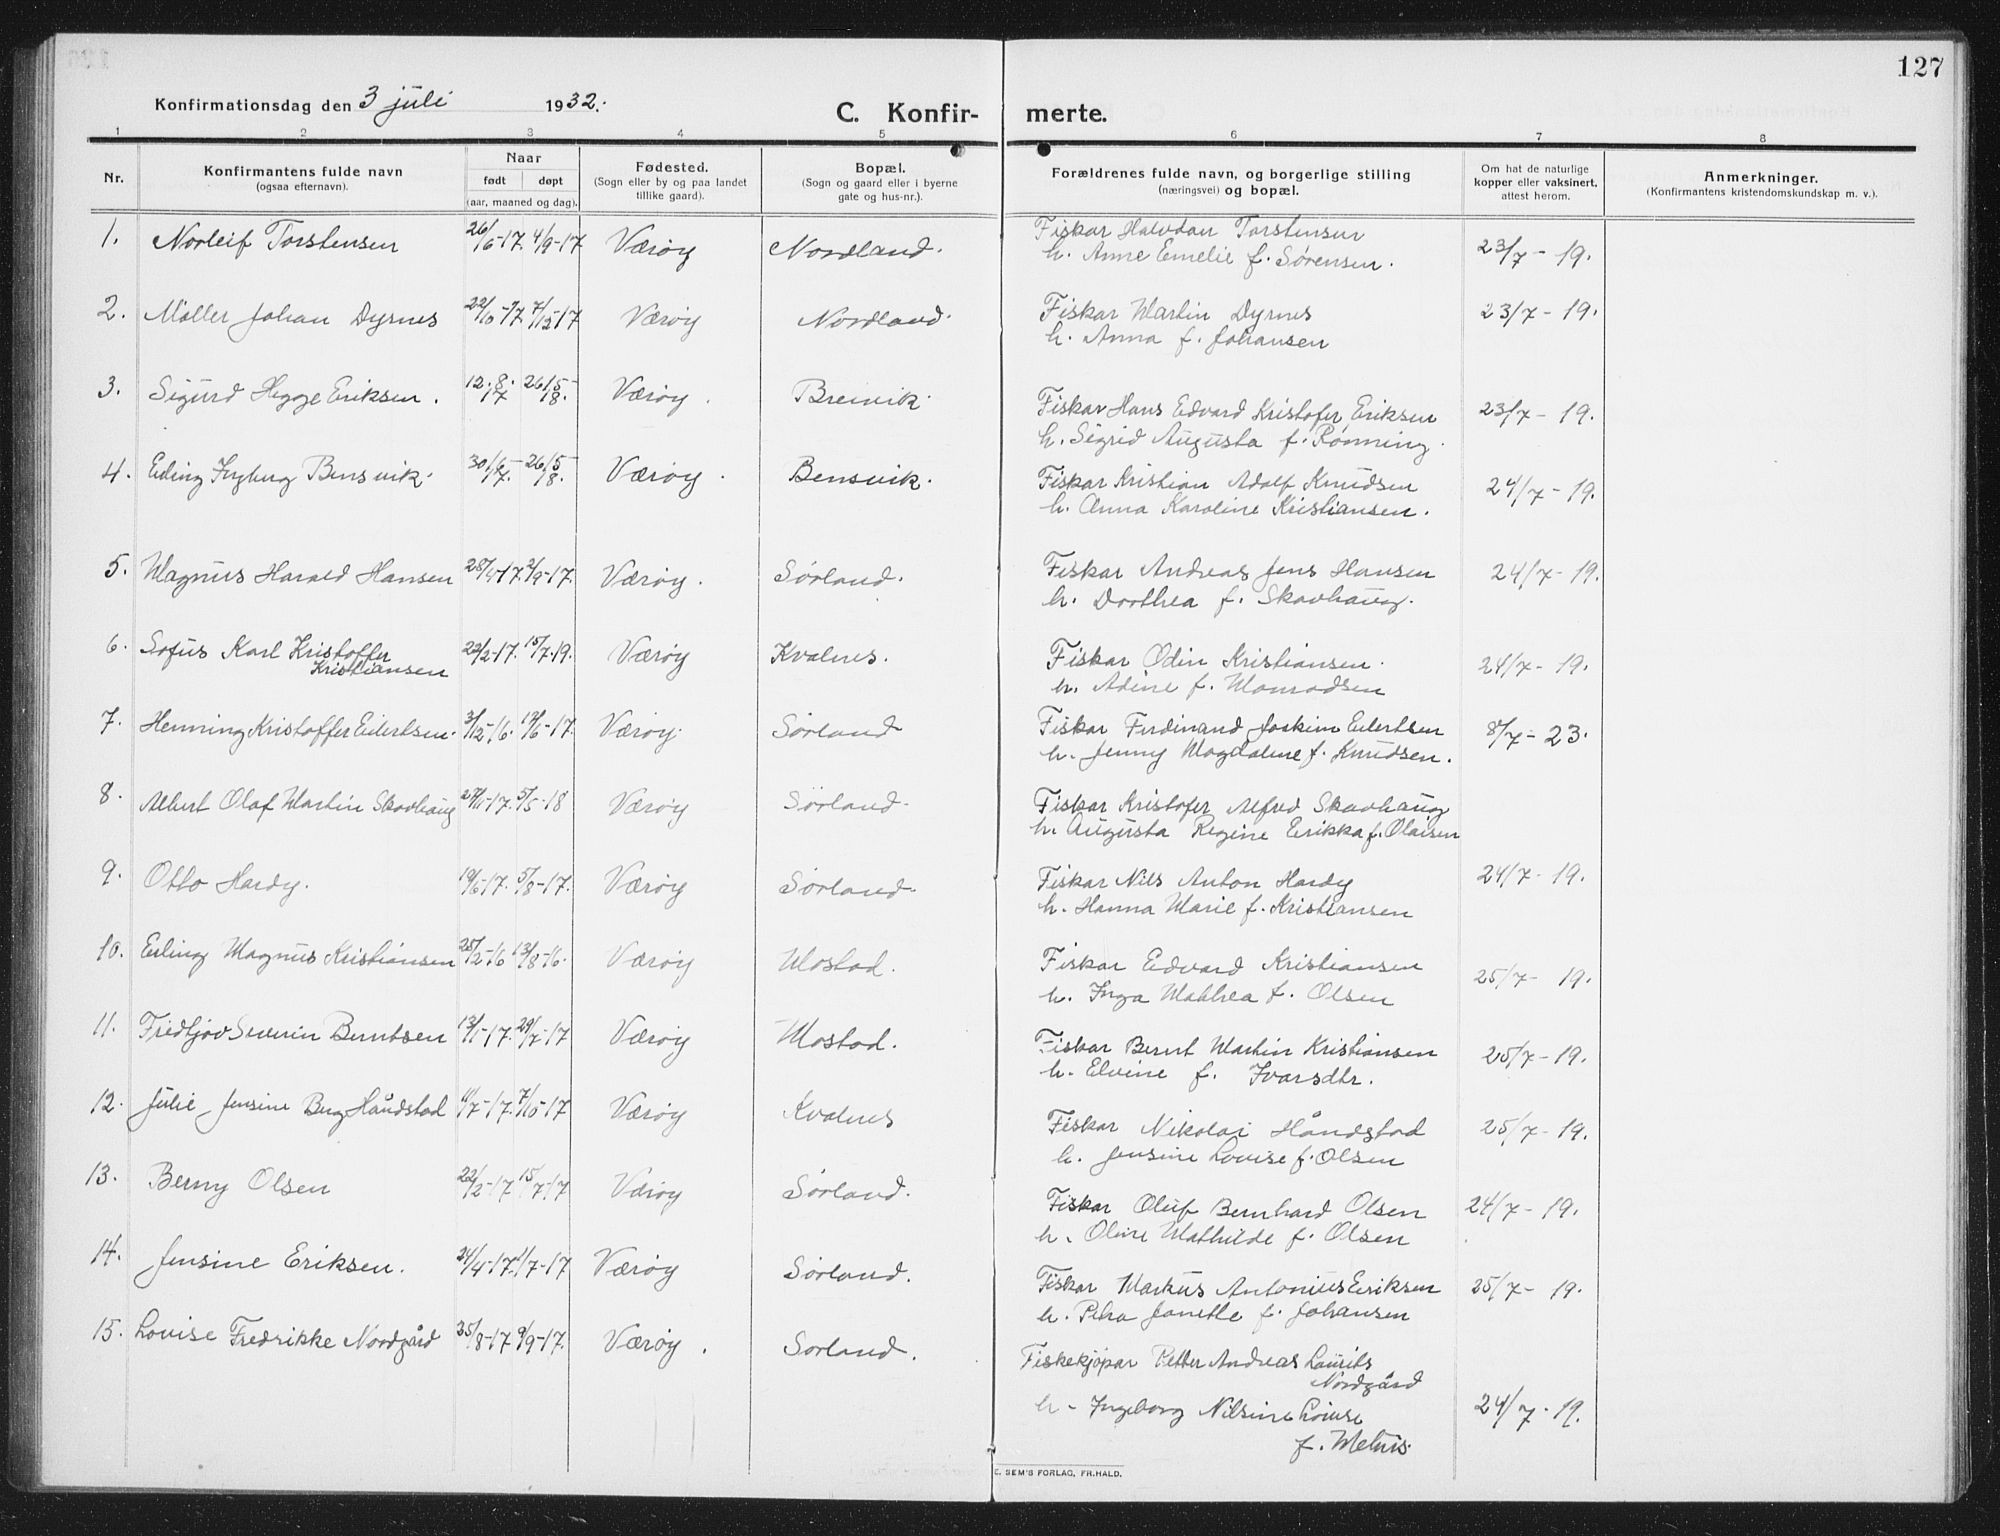 127
Konfirmationsdag den 3 juli 1932.
C. Konfirmerte.
1 2 3 4 5 6 7 8
Nr.
Konfirmantens fulde navn
(ogsaa efternavn).
Naar
født døpt
(aar, maaned og dag).
Fødested.
(Sogn eller by og paa landet
tillike gaard).
Bopæl.
(Sogn og gaard eller i byerne
gate og hus-nr.).
Forældrenes fulde navn, og borgerlige stilling
(næringsvei) og bopæl.
Om hat de naturlige
kopper eller vaksinert,
attest herom.
Anmerkninger.
(Konfirmantens kristendomskundskap m. v.).
1. Norleif Torstensen 26/6-17. 4/9-17 Værøy Nordland. Fiskar Halvdan Torstensen 23/7-19.
h. Anne Emelie f. Sørensen.
2. Møller Johan Dyrnes 22/10-17. 7/12-17 Værøy Nordland. Fiskar Martin Dyrnes 23/7-19.
h. Anna f. Johansen
3. Sigurd Hegge Eriksen. 12.8.17 26/5-18. Værøy. Breivik. Fiskar Hans Edvard Kristofer Eriksen 23/7-19.
h. Sigrid Augusta f. Rønning.
4. Bensvik. 26/5-18. Værøy. Bensvik. Fiskar Kristian Adolf Knudsen 24/7-19.
h. Anna Karoline Kristiansen.
5. Magnus Harald Hansen 28/4-17. 2/9-17. Værøy. Sørland. Fiskar Andreas Jens Hansen 24/7-19.
h. Dorthea f. Skavhaug.
6. Sofus Karl Kristoffer 22/2-17. 15/7-19. Værøy Kvalnes. Fiskar Odin Kristiansen. 24/7-19.
Kristiansen h. Adine f. Monradsen
7. Henning Kristoffer Eilertsen. 3/12-16. 17. Værøy. Sørland Fiskar Ferdinand Joakim Eilertsen 8/7-23.
h. Jenny Magdalene f. Knudsen.
8. Albert Olaf Martin Skavhaug 17. 5/5-18 Værøy Sørland. Fiskar Kristofer Alfred Skavhaug
h. Augusta Regine Erikka f. Olaisen
9. Otto Hardy. 19/6-17. 5/8-17. Værøy Sørland. Fiskar Nils Anton Hardy 24/7-19.
h. Hanna Marie f. Kristiansen
10. Erling Magnus Kristiansen 25/2-16 13/8-16. Værøy Mostad. Fiskar Edvard Kristiansen 25/7-19.
h. Inga Mathea f. Olsen
11. Fredtjov Severin Berntsen 13/1-17. 29/7-17 Værøy Mostad. Fiskar Bernt Martin Kristiansen 25/7-19.
h. Elvine f. Ivarsdtr.
12. Julie Jensine Berg Håndstad 11/7-17. 7/10-17 Værøy Kvalnes Fiskar Nikolai Håndstad 25/7-19.
h. Jensine Lovise f. Olsen
13. Berny Olsen 22/2-17 15/7-17 Værøy Sørland. Fiskar Oluf Bernhard Olsen 24/7-19.
h. Oline Mathilde f. Olsen
14. Jensine Eriksen. 24/4-17. 1/7-17 Værøy Sørland. Fiskar Markus Antonius Eriksen 25/7-19.
h. Petra Janette f. Johansen
15. Lovise Fredrikke Nordgård 25/8-17. 9/9-17. Værøy. Sørland. Fiskekjøpar Petter Andreas Laurits
Nordgård
h. Ingeborg Nilsine Lovise 24/7-19.
f. Melnis.
E. SEM'S FORLAG, FR.HALD.